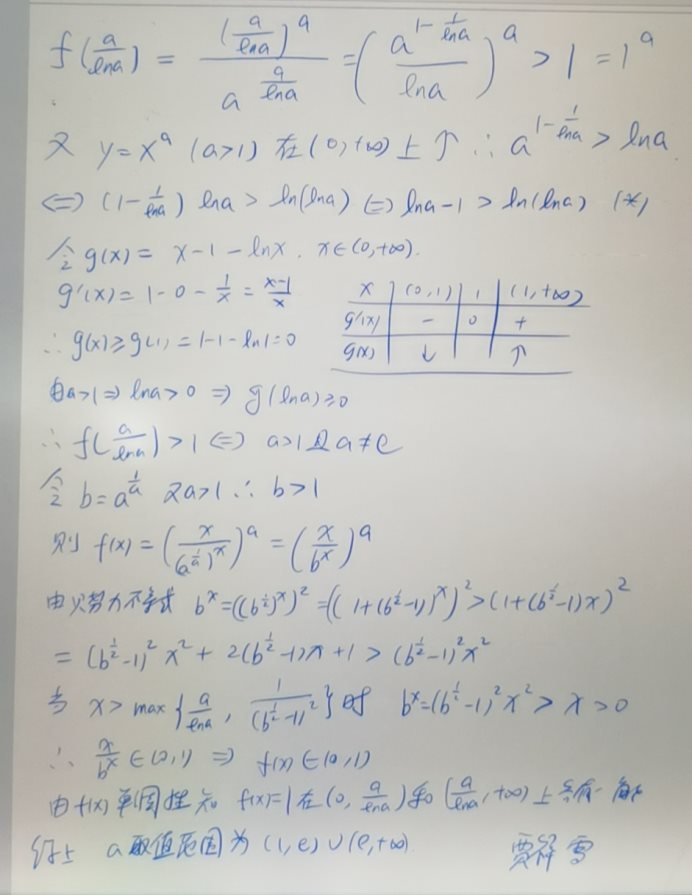 f(a/lna) = (a/lna)^a / a^(a/lna) = (a^(1-1/lna) / lna)^a > 1 = 1^a
又 y=x^a (a>1) 在(0,+∞)上↑ ∴ a^(1-1/lna) > lna
⇔ (1-1/lna) lna > ln(lna) ⇔ lna-1 > ln(lna) (*)
令 g(x) = x-1-lnx. x∈(0,+∞).
g'(x) = 1-0-1/x = (x-1)/x
x | (0,1) | 1 | (1,+∞)
g'(x) | - | 0 | +
g(x) | ↓ | | ↑
∴ g(x)≥g(1) = 1-1-ln1=0
由a>1 ⇒ lna>0 ⇒ g(lna)≥0
∴ f(a/lna)>1 ⇔ a>1且a≠e
令 b=a^(1/a) 又a>1 ∴ b>1
则 f(x) = (x/(a^(1/a))^x)^a = (x/b^x)^a
由贝努力不等式 b^x=((b^(1/2))^x)^2=((1+(b^(1/2)-1))^x)^2>(1+(b^(1/2)-1)x)^2
= (b^(1/2)-1)^2 x^2 + 2(b^(1/2)-1)x+1 > (b^(1/2)-1)^2 x^2
当 x> max{a/lna, 1/(b^(1/2)-1)^2}时 b^x=(b^(1/2)-1)^2 x^2 > x > 0
∴ x/b^x ∈(0,1) ⇒ f(x)∈(0,1)
由f(x)单调性知 f(x)=1在(0, a/lna)和(a/lna, +∞)上各有一解
综上 a取值范围为 (1,e)∪(e,+∞)